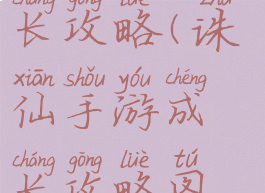 cháng gōng lüè zhū
长攻略(诛
xiān shǒu yóu chéng
仙手游成
cháng gōng lüè tú
长攻略图